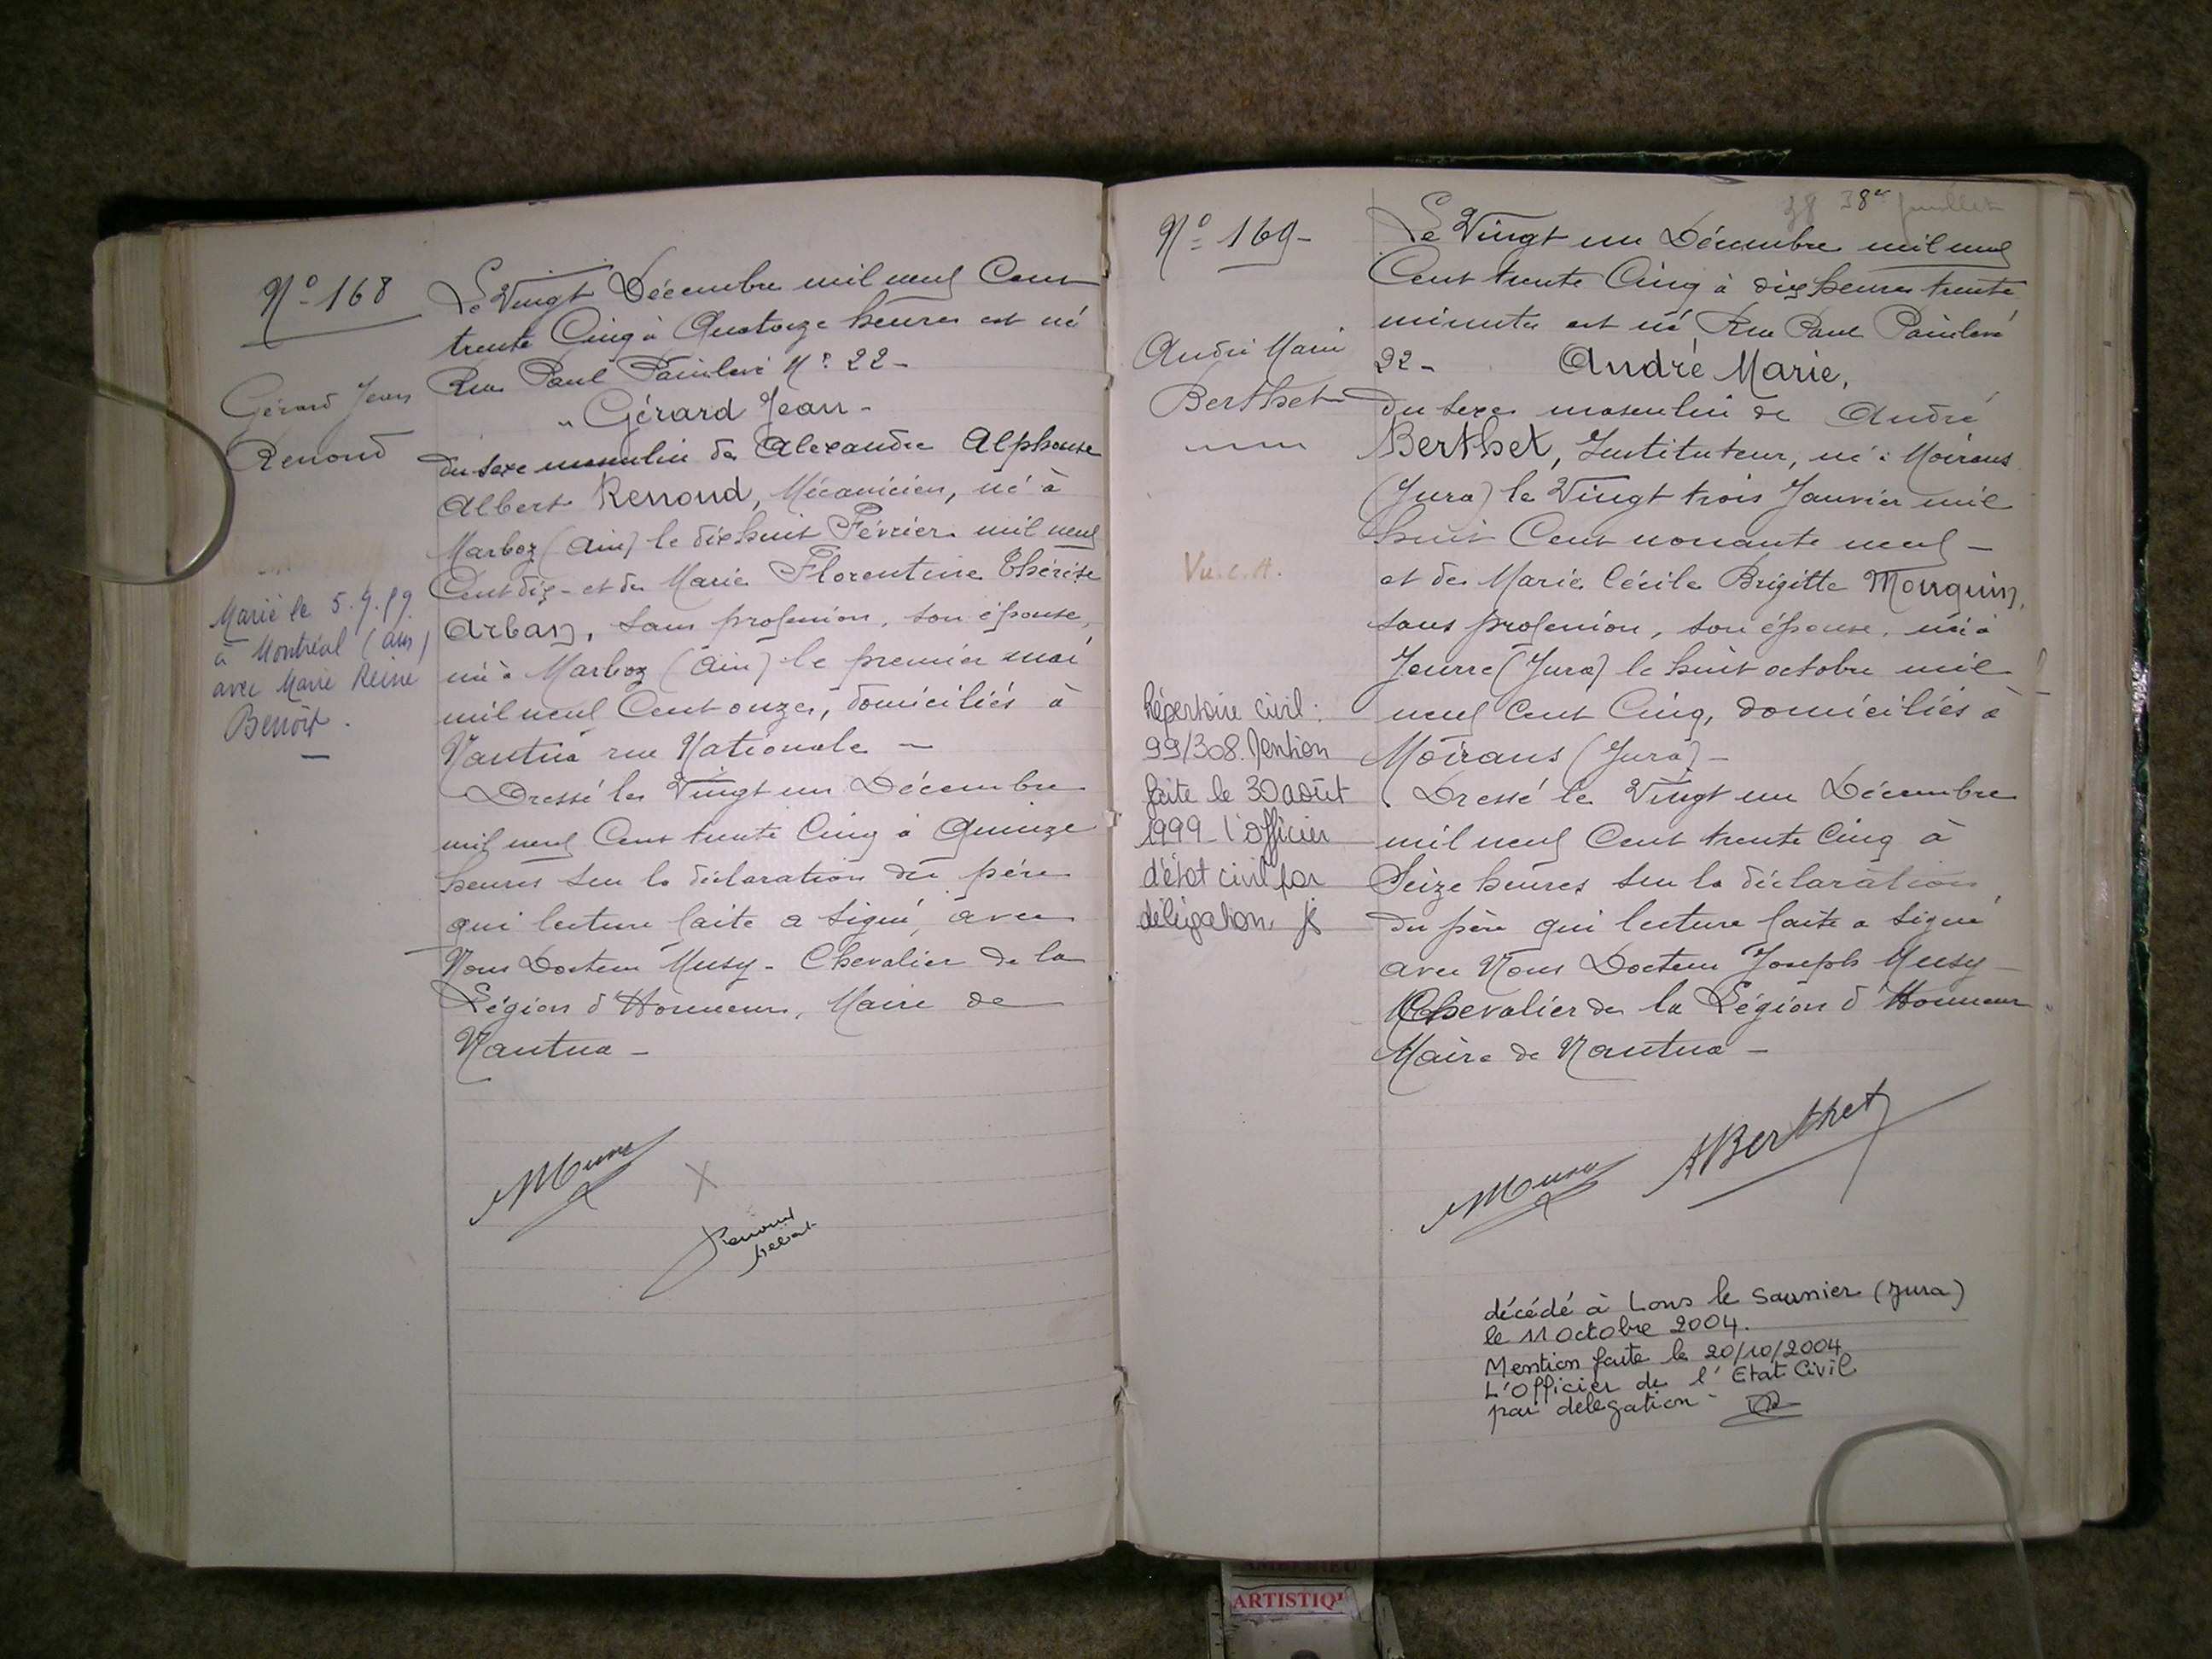 N° 168
Gérard Jean
Renoud
Marié le 5.9.59
à Montréal (ain)
avec Marie Reine
Benoît.
Le Vingt Décembre mil neuf Cent
trente Cinq à Quatorze heures est né
Rue Paul Painlevé N° 22 -
"Gérard Jean -
du sexe masculin de Alexandre Alphonse
Albert Renoud, Mécanicien, né à
Marboz (Ain) le dix huit Février mil neuf
Cent dix - et de Marie Florentine Thérèse
Arban, sans profession, son épouse,
née à Marboz (Ain) le premier mai
mil neuf Cent onze, domiciliés à
Nantua rue Nationale -
Dressé le Vingt un Décembre
mil neuf Cent trente Cinq à Quinze
heures sur la déclaration du père
qui lecture faite a signé avec
Nous Docteur Musy - Chevalier de la
Légion d'Honneur, Maire de
Nantua -
Musy
Renoud
N° 169 -
André Marie
Berthet
Vu. C. A.
Répertoire civil :
99/308. Mention
faite le 30 août
1999 - l'officier
d'état civil par
délégation
38 38 juillet
Le Vingt un Décembre mil neuf
Cent trente Cinq à dix heures trente
minutes est né, Rue Paul Painlevé
22 - André Marie,
du sexe masculin de André
Berthet, Instituteur, né à Moirans
(Jura) le Vingt trois Janvier mil
huit Cent nonante neuf -
et de Marie Cécile Brigitte Mourquin,
sans profession, son épouse, née à
Jeurre (Jura) le huit octobre mil
neuf Cent Cinq, domiciliés à
Moirans (Jura) -
Dressé le Vingt un Décembre
mil neuf Cent trente Cinq à
Seize heures sur la déclaration
du père qui lecture faite a signé
avec Nous Docteur Joseph Musy -
Chevalier de la Légion d'Honneur
Maire de Nantua -
Musy
ABerthet
décédé à Lons le Saunier (Jura)
le 11 Octobre 2004.
Mention faite le 20/10/2004
L'Officier de l'Etat Civil
par délégation -
ARTISTIQU